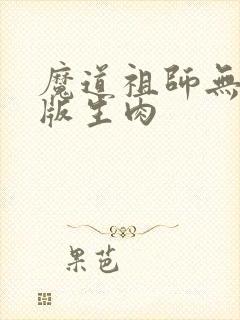 魔道祖師無
版生肉
果芭